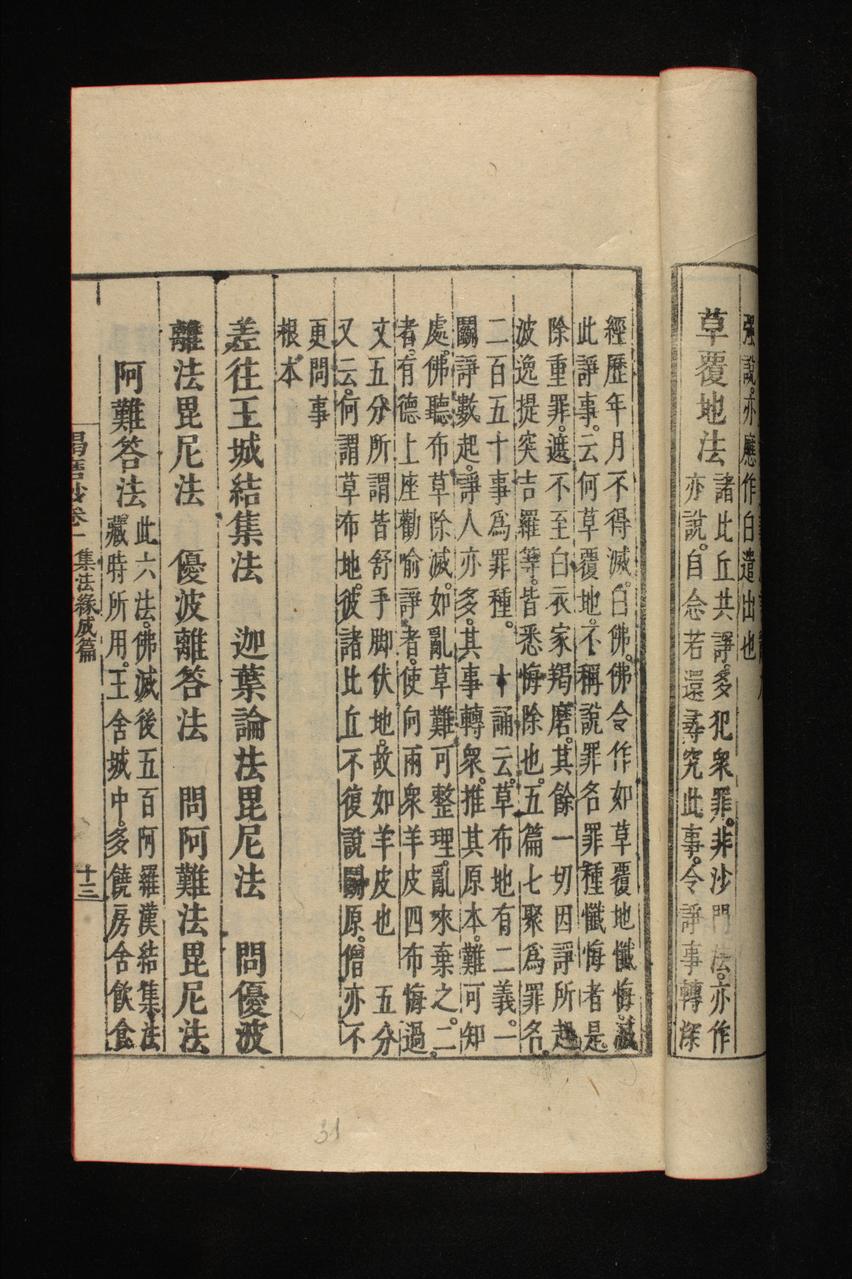 強說亦應作白遣出也
草覆地法
諸比丘共諍多犯衆罪非沙門法亦作
亦說自念若還尋究此事令諍事轉深
經歷年月不得滅白佛佛令作如草覆地懺悔滅
此諍事云何草覆地不稱說罪名罪種懺悔者是
除重罪遮不至白衣家羯磨其餘一切因諍所起
波逸提突吉羅等皆悉悔除也五篇七聚爲罪名
二百五十事爲罪種。　十誦云草布地有二義一
鬬諍數起諍人亦多其事轉衆推其原本難可知
處佛聽布草除滅如亂草難可整理亂來棄之二
者有德上座勸喻諍者使向兩衆羊皮四布悔過
文五分所謂皆舒手脚伏地故如羊皮也　五分
又云何謂草布地彼諸比丘不復說鬬原僧亦不
更問事
根本
差往王城結集法　迦葉論法毘尼法　問優波
離法毘尼法　優波離答法　問阿難法毘尼法
阿難答法
此六法佛滅後五百阿羅漢結集法
藏時所用王舍城中多饒房舍飲食
羯磨 卷一 集法緣成篇 十三
31